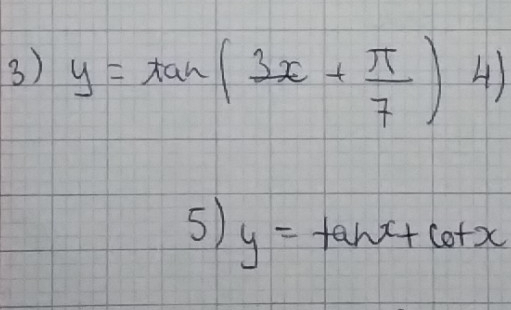 3) y = tan(3x + π/7) 4)
5) y = tanx + cotx